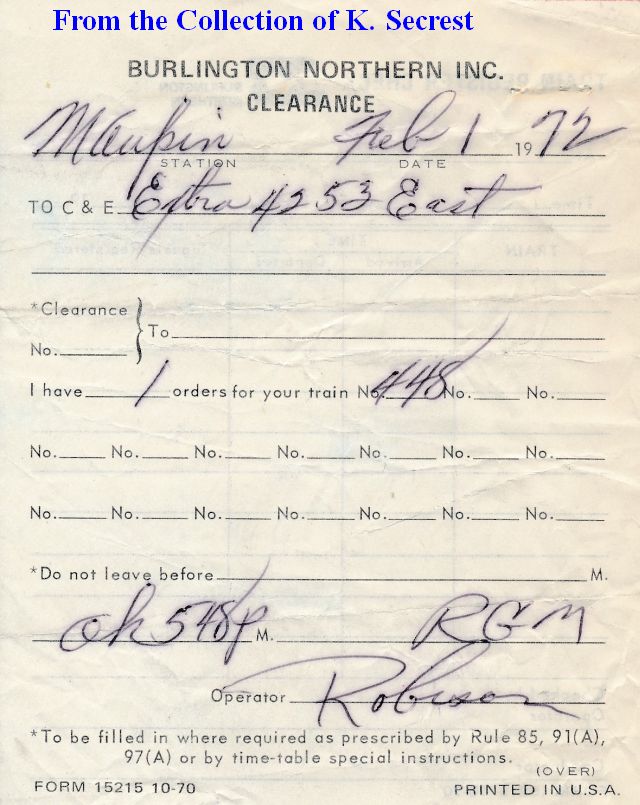 From the Collection of K. Secrest
BURLINGTON NORTHERN INC.
CLEARANCE
Maupin Feb 1 1972
STATION DATE
TO C & E Extra 4253 East
*Clearance
No. To
I have 1 orders for your train No. 448 No. No.
No. No. No. No. No. No. No.
No. No. No. No. No. No. No.
*Do not leave before M.
Ok 548p M. RGM
Operator Robison
*To be filled in where required as prescribed by Rule 85, 91(A),
97(A) or by time-table special instructions.
(OVER)
FORM 15215 10-70 PRINTED IN U.S.A.